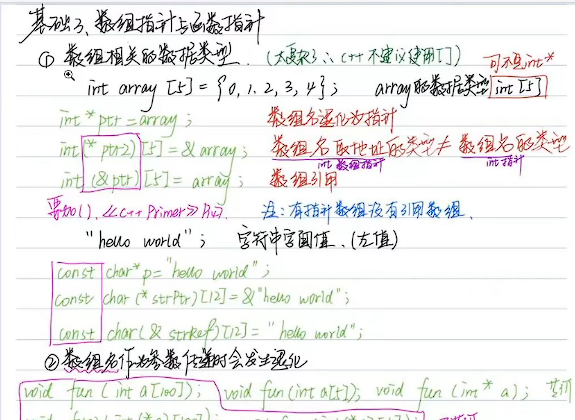 基础3、数组指针与函数指针
① 数组相关的数据类型. (太复杂了∴C++不建议使用[])
int array [5] = {0, 1. 2, 3, 4}; array的数据类型 int [5] 可不是int*
int * ptr = array; 数组名退化为指针
int (* ptr2) [5] = & array; 数组名取地址的类型 ≠ 数组名的类型
int 数组指针 int指针
int (& ptr) [5] = array; 数组引用
要加(), 《C++ Primer》 注: 有指针数组没有引用数组.
"hello world"; 字符串字面值. (左值)
const char* p = "hello world";
const char (* strPtr) [12] = & "hello world";
const char (& strRef) [12] = "hello world";
② 数组名作为参数传递时会发生退化
void fun (int a[100]); void fun (int a[5]); void fun (int * a);